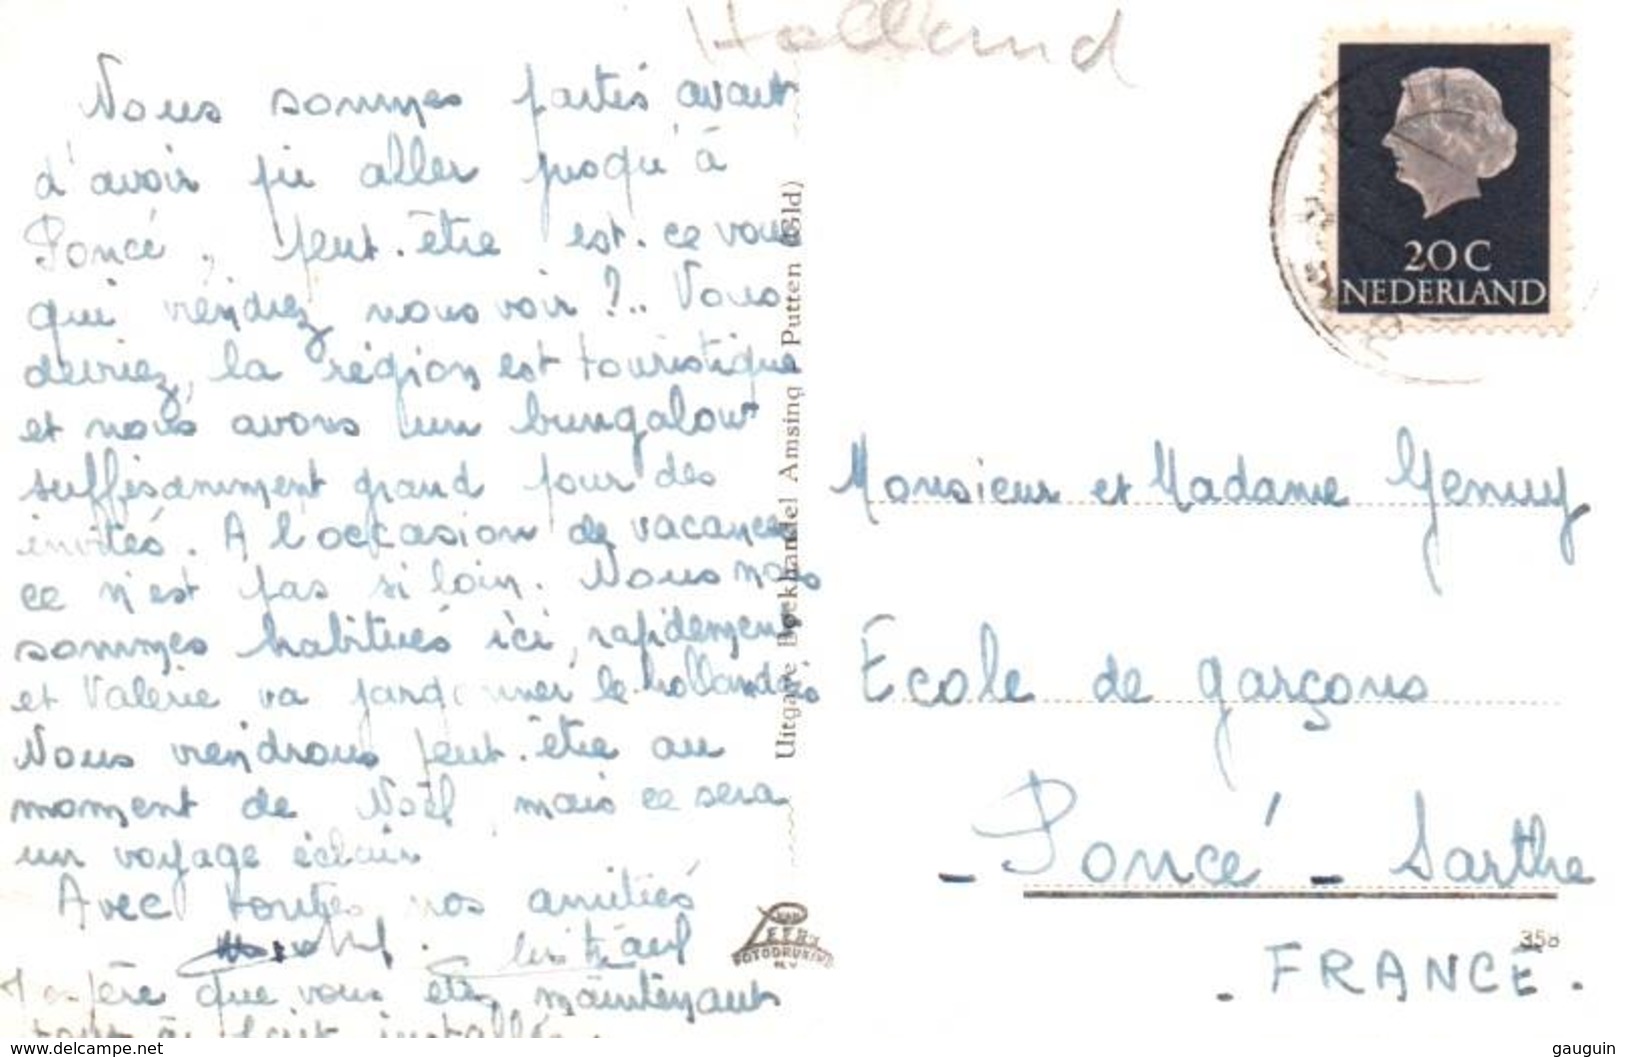 Holland
Nous sommes partis avant
d'avoir pu aller jusqu'à
Poncé, peut-être est-ce vous
qui viendrez nous voir ?.. Vous
devriez, la région est touristique
et nous avons un bungalow
suffisamment grand pour des
invités. A l'occasion de vacances
ce n'est pas si loin. Nous nous
sommes habitués ici, rapidement
et Valérie va jargonner le hollandais
Nous viendrons peut-être au
moment de Noël, mais ce sera
un voyage éclair
Avec toutes nos amitiés
J'espère que vous êtes maintenant
tout à fait installés.
Uitgave Boekhandel Amsing Putten (Gld)
VAN
LEER'S
FOTODRUKINR
N.V.
20 C
NEDERLAND
Monsieur et Madame
Ecole de garçons
- Poncé - Sarthe
358
- FRANCE.
www.delcampe.net
gauguin